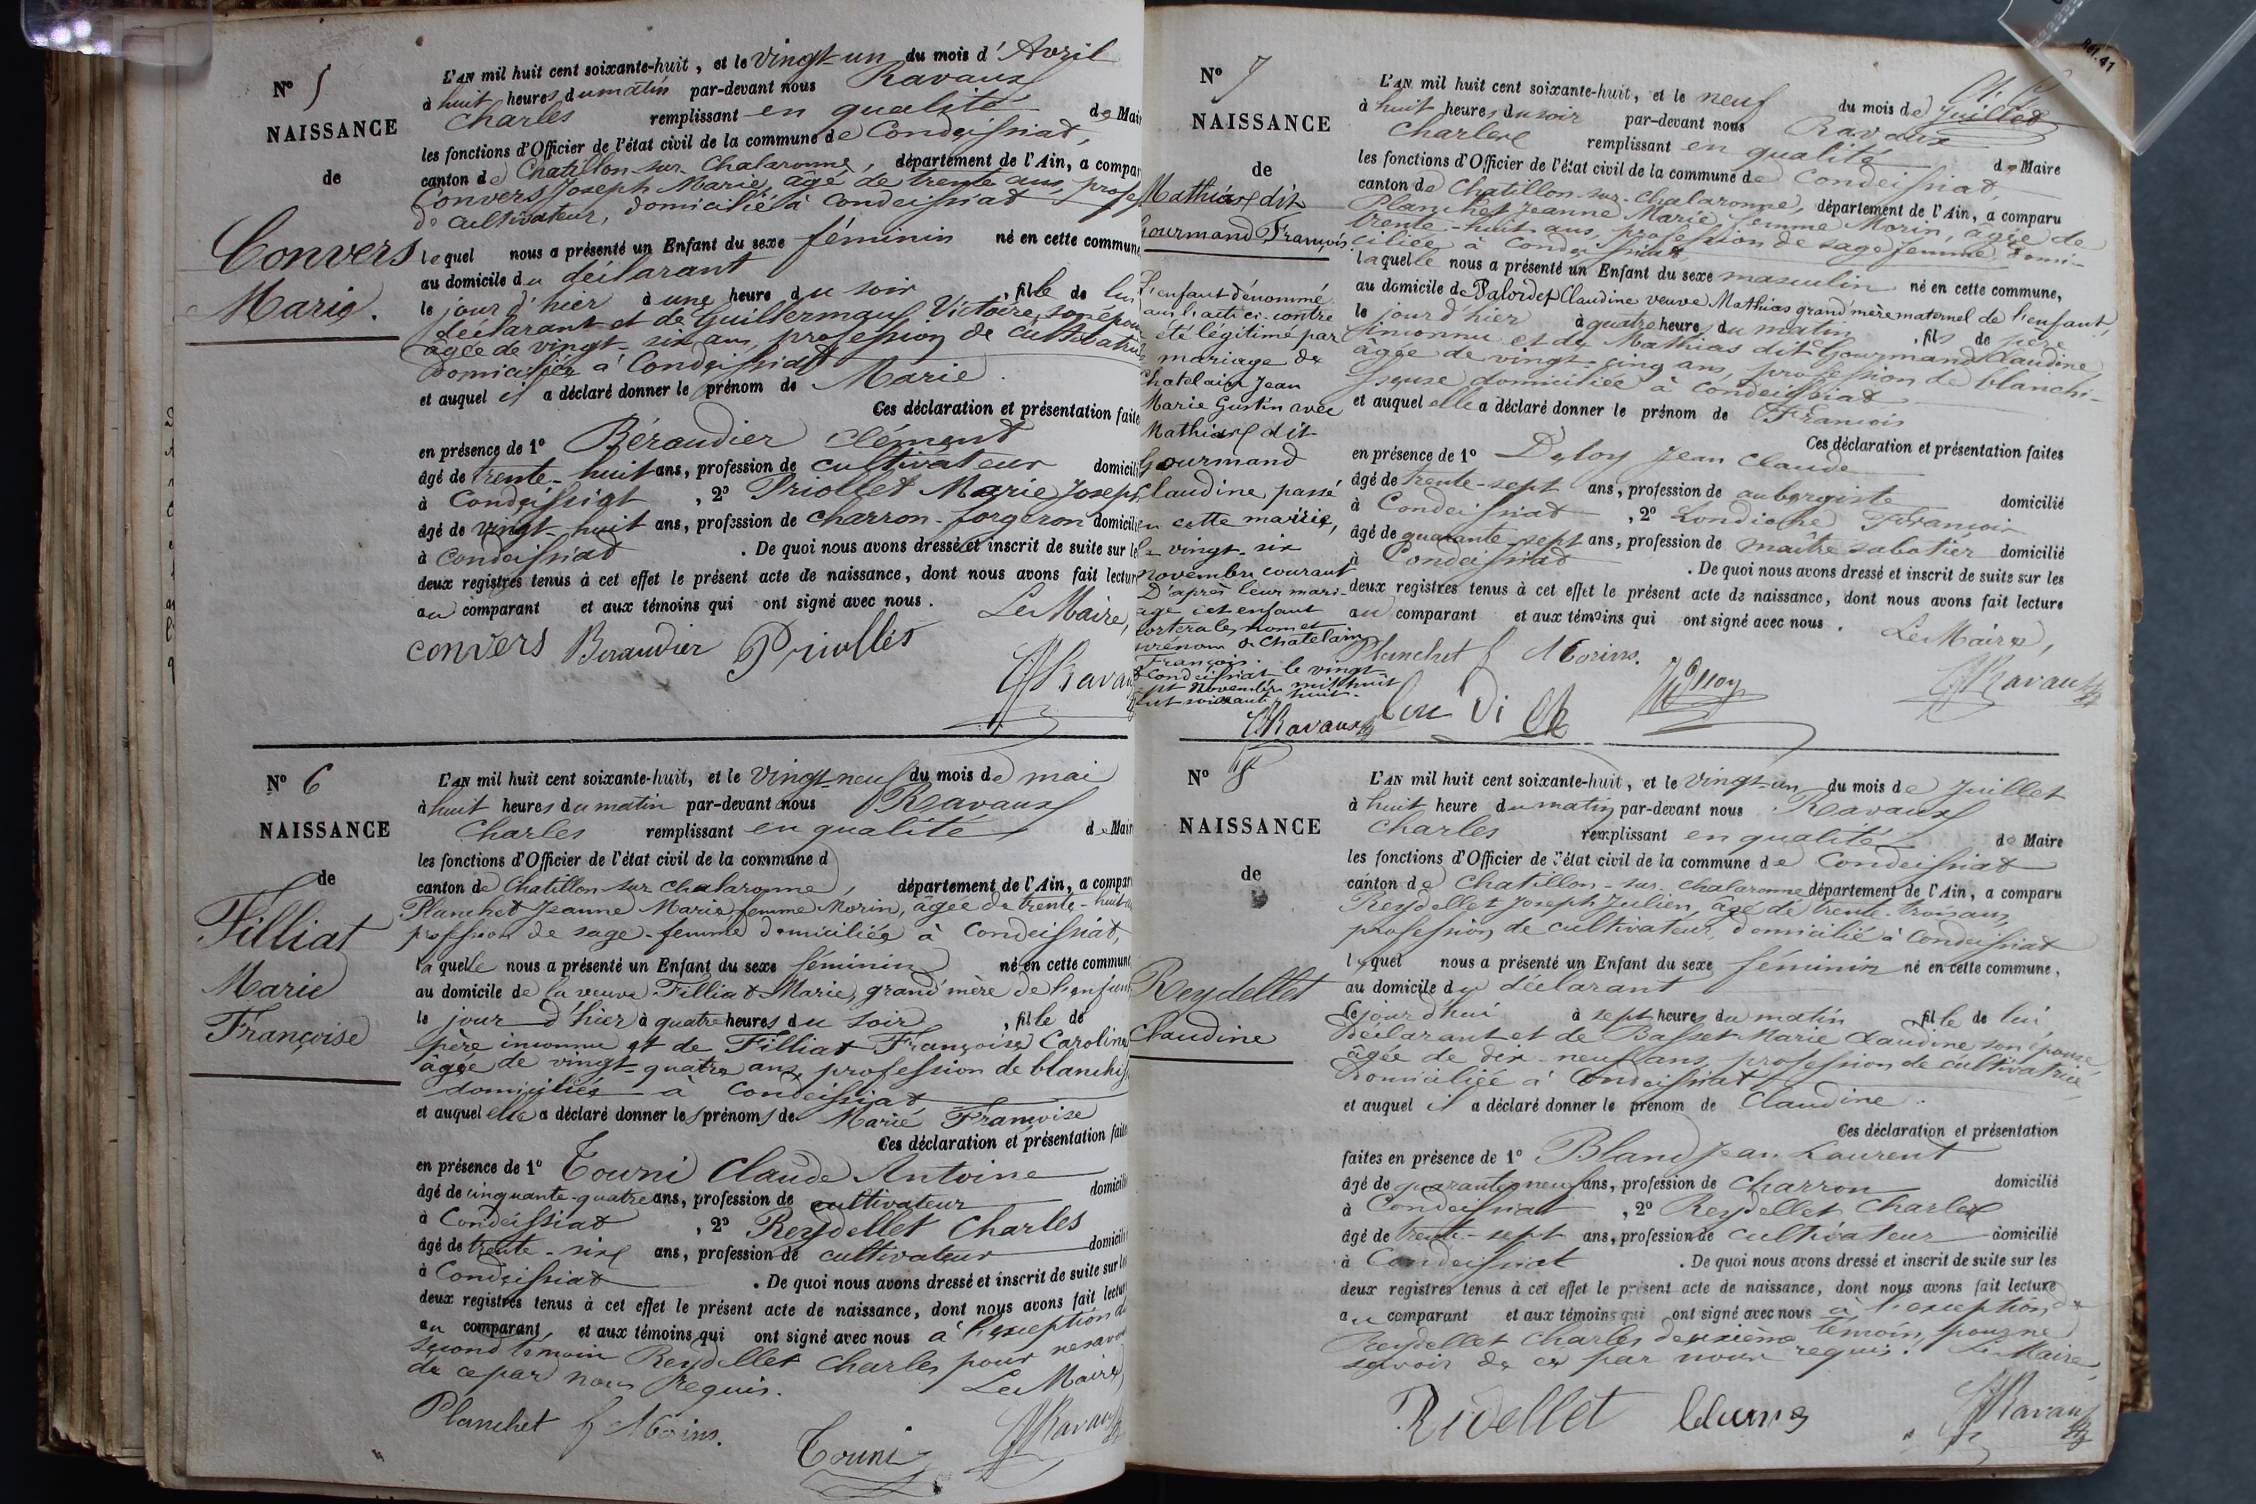 Nº 5
NAISSANCE
de
Convers
Marie.
L'AN mil huit cent soixante-huit, et le vingt-un du mois d'Avril
à huit heures du matin par-devant nous Ravaux
Charles remplissant en qualité de Mair
les fonctions d'Officier de l'état civil de la commune de Condeissiat,
canton de Chatillon-sur-Chalaronne, département de l'Ain, a compar
Convers Joseph Marie, âgé de trente ans, profes
de cultivateur, domicilié à Condeissiat
lequel nous a présenté un Enfant du sexe féminin né en cette commune
au domicile du déclarant
le jour d'hier à une heure du soir, fille de lui
déclarant et de Guillermain Victoire son épou
âgée de vingt-six ans, profession de cultivatrice
domiciliée à Condeissiat
et auquel il a déclaré donner le prénom de Marie.
Ces déclaration et présentation faite
en présence de 1º Béraudier Clément
âgé de trente-huit ans, profession de cultivateur domicili
à Condeissiat, 2º Priollet Marie Joseph
âgé de vingt-huit ans, profession de charron-forgeron domicili
à Condeissiat. De quoi nous avons dressé et inscrit de suite sur le
deux registres tenus à cet effet le présent acte de naissance, dont nous avons fait lectur
au comparant et aux témoins qui ont signé avec nous. Le Maire,
convers Beraudier Priollet
Ravau
Nº 6
NAISSANCE
de
Filliat
Marie
Françoise
L'AN mil huit cent soixante-huit, et le vingt-neuf du mois de mai
à huit heures du matin par-devant nous Ravaux
Charles remplissant en qualité de Mair
les fonctions d'Officier de l'état civil de la commune d
canton de Chatillon-sur-Chalaronne, département de l'Ain, a compar
Planchet Jeanne Marie femme Morin, âgée de trente-huit a
profession de sage-femme domiciliée à Condeissiat,
laquelle nous a présenté un Enfant du sexe féminin né en cette commune
au domicile de la veuve Filliat Marie, grand'mère de l'enfant
le jour d'hier à quatre heures du soir, fille de
père inconnu et de Filliat Françoise Caroline
âgée de vingt-quatre ans, profession de blanchis
domiciliée à Condeissiat
et auquel elle a déclaré donner les prénoms de Marie Françoise
Ces déclaration et présentation faite
en présence de 1º Touni Claude Antoine
âgé de cinquante-quatre ans, profession de cultivateur domicili
à Condeissiat, 2º Reydellet Charles
âgé de trente-six ans, profession de cultivateur domicili
à Condeissiat. De quoi nous avons dressé et inscrit de suite sur le
deux registres tenus à cet effet le présent acte de naissance, dont nous avons fait lectur
au comparant, et aux témoins qui ont signé avec nous à l'exception du
second témoin Reydellet Charles pour ne savoir
de ce par nous requis. Le Maire
Planchet f Morin.
Touni
Ravaux
Réf. 41
Nº 7
NAISSANCE
de
Mathias dit
Gourmand François
L'enfant dénommé
au l'acte ci-contre
été légitimé par
mariage de
Chatelain Jean
Marie Gustin avec
Mathias dit
Gourmand
Claudine passé
en cette mairie,
le vingt-six
novembre courant
D'après leur mari-
age cet enfant
portera les nom et
prénom de Chatelain
François.
Condeissiat le vingt
sept Novembre mil huit
cent soixante huit.
Ravaux
L'AN mil huit cent soixante-huit, et le neuf du mois de Juillet
à huit heures du soir par-devant nous Ravaux
Charles remplissant en qualité de Maire
les fonctions d'Officier de l'état civil de la commune de Condeissiat,
canton de Chatillon-sur-Chalaronne, département de l'Ain, a comparu
Planchet Jeanne Marie femme Morin, âgée de
trente-huit ans, profession de sage femme, domi-
ciliée à Condeissiat,
laquelle nous a présenté un Enfant du sexe masculin né en cette commune,
au domicile de Palordet Claudine veuve Mathias grand'mère maternel de l'enfant,
le jour d'hier à quatre heures du matin, fils de père
inconnu et de Mathias dit Gourmand Claudine
âgée de vingt-cinq ans, profession de blanchi-
sseuse domiciliée à Condeissiat
et auquel elle a déclaré donner le prénom de François
Ces déclaration et présentation faites
en présence de 1º Deloy Jean Claude
âgé de trente-sept ans, profession de aubergiste domicilié
à Condeissiat, 2º Londiche François
âgé de quarante-sept ans, profession de maître sabotier domicilié
à Condeissiat. De quoi nous avons dressé et inscrit de suite sur les
deux registres tenus à cet effet le présent acte de naissance, dont nous avons fait lecture
au comparant et aux témoins qui ont signé avec nous. Le Maire,
Planchet f Morin.
Deloy
Ravaux
Nº 8
NAISSANCE
de
Reydellet
Claudine
L'AN mil huit cent soixante-huit, et le vingt-un du mois de Juillet
à huit heure du matin par-devant nous Ravaux
Charles remplissant en qualité de Maire
les fonctions d'Officier de l'état civil de la commune de Condeissiat
canton de Chatillon-sur-Chalaronne département de l'Ain, a comparu
Reydellet Joseph Julien, âgé de trente-trois ans,
profession de cultivateur, domicilié à Condeissiat
lequel nous a présenté un Enfant du sexe féminin né en cette commune,
au domicile du déclarant
le jour d'hui à sept heures du matin fille de lui
déclarant et de Basset Marie Claudine son épouse,
âgée de dix-neuf ans, profession de cultivatrice,
domiciliée à Condeissiat
et auquel il a déclaré donner le prénom de Claudine.
Ces déclaration et présentation
faites en présence de 1º Bland Jean Laurent
âgé de quarante-neuf ans, profession de charron domicilié
à Condeissiat, 2º Reydellet Charles
âgé de trente-sept ans, profession de cultivateur domicilié
à Condeissiat. De quoi nous avons dressé et inscrit de suite sur les
deux registres tenus à cet effet le présent acte de naissance, dont nous avons fait lecture
au comparant et aux témoins qui ont signé avec nous à l'exception de
Reydellet Charles deuxième témoin, pour ne
savoir de ce par nous requis. Le Maire,
Ridellet
Ravaux